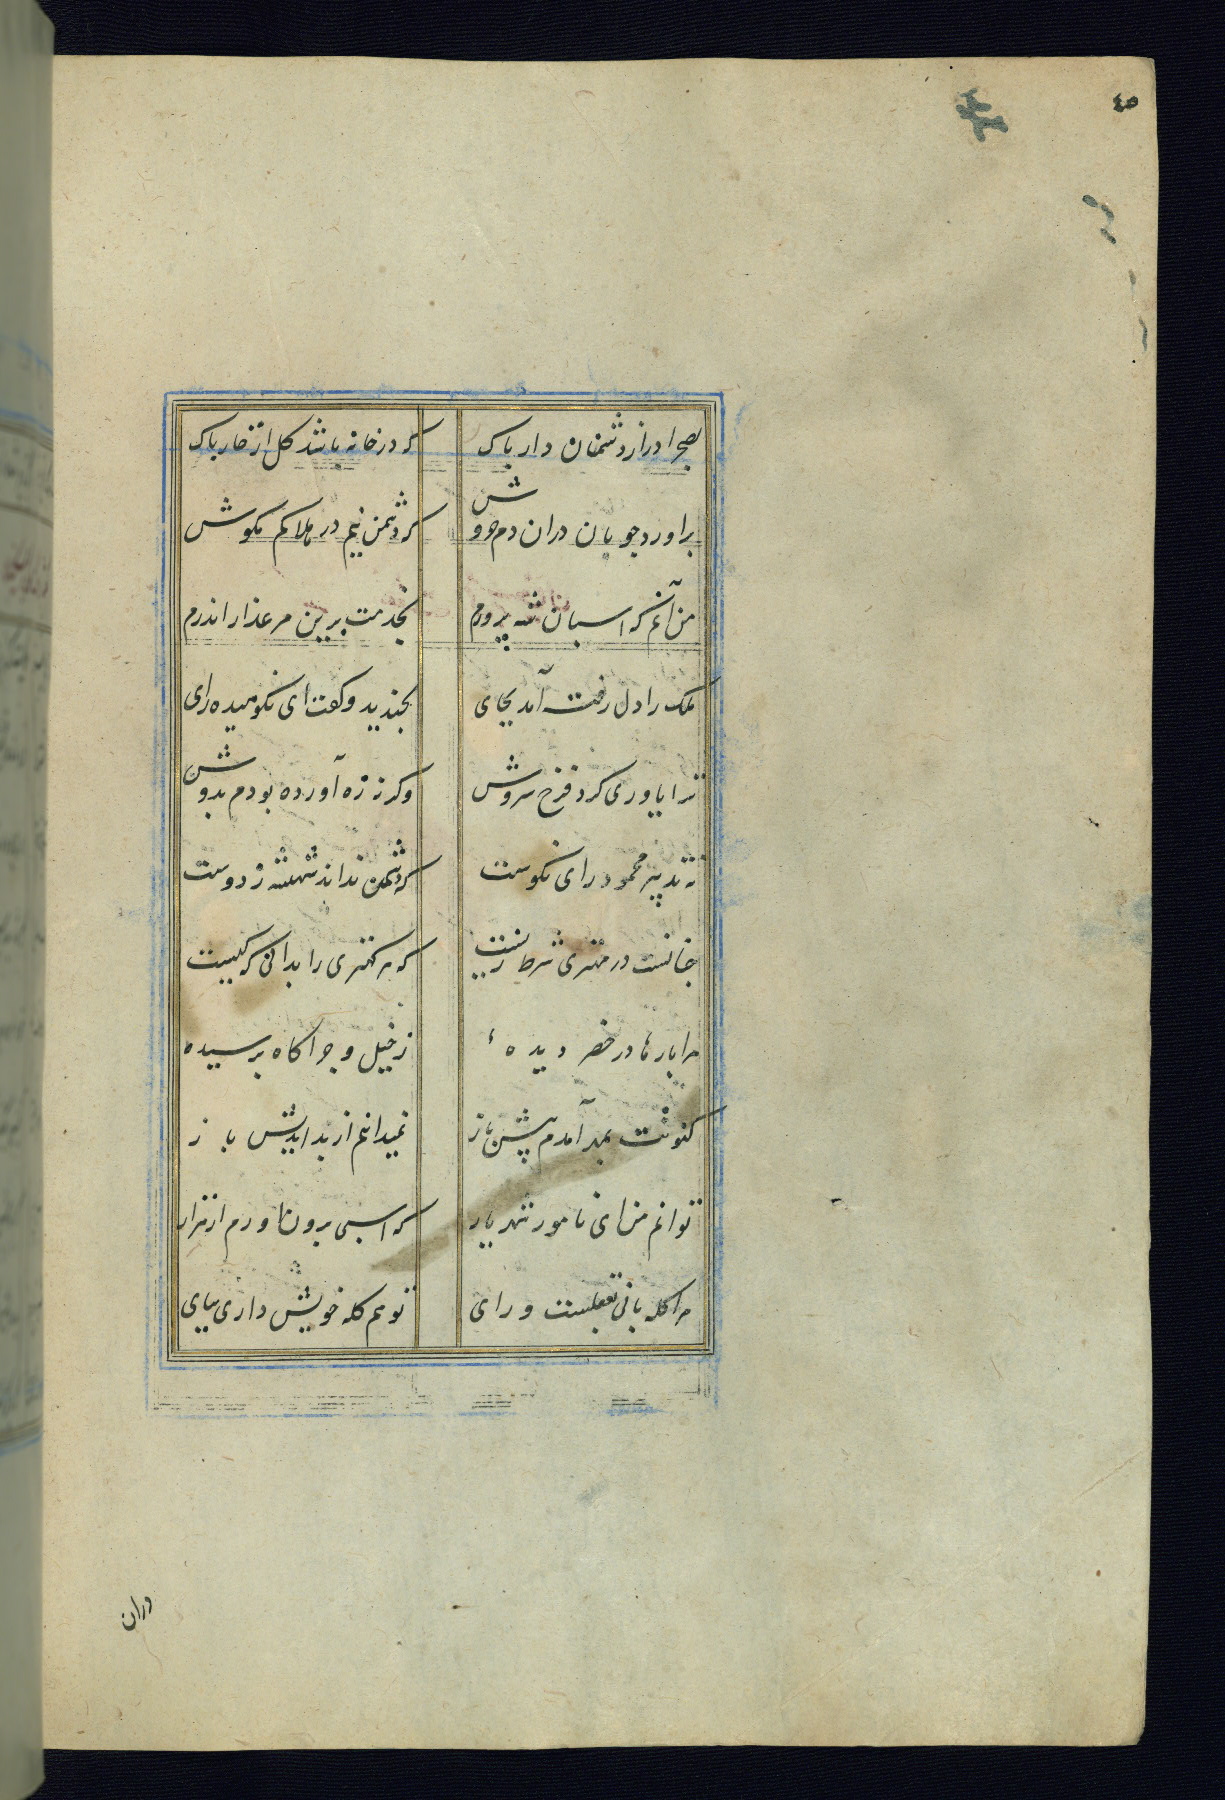 ٤٥
بصحرا در از دشمنان دار باک که در خانه باشد کل از خار پاک
براورد جوپان دران دم خروش که دشمن نیم در هلاکم مکوش
من آنم که اسبان شه پرورم بخدمت برین مرغذار اندرم
ملک را دل رفته آمد بجای بخندید و کفت ای نکوهیده رای
ترا یاوری کرد فرخ سروش وکر نه زه آورده بودم بدوش
نه تدبیر محمود و رای نکوست که دشمن نداند شهنشه ز دوست
چنانست در مهتری شرط زیست که هر کهتری را بدانی که کیست
مرا بارها در حضر دیدهٔ ز خیل و چراکاه پرسیده
کنونت بمهر آمدم پیش باز نمیدانیم از بداندیش باز
توانم من ای نامور شهریار که اسبی برون اورم از هزار
مرا کله بانی بعقلست و رای تو هم کله خویش داری بپای
دران